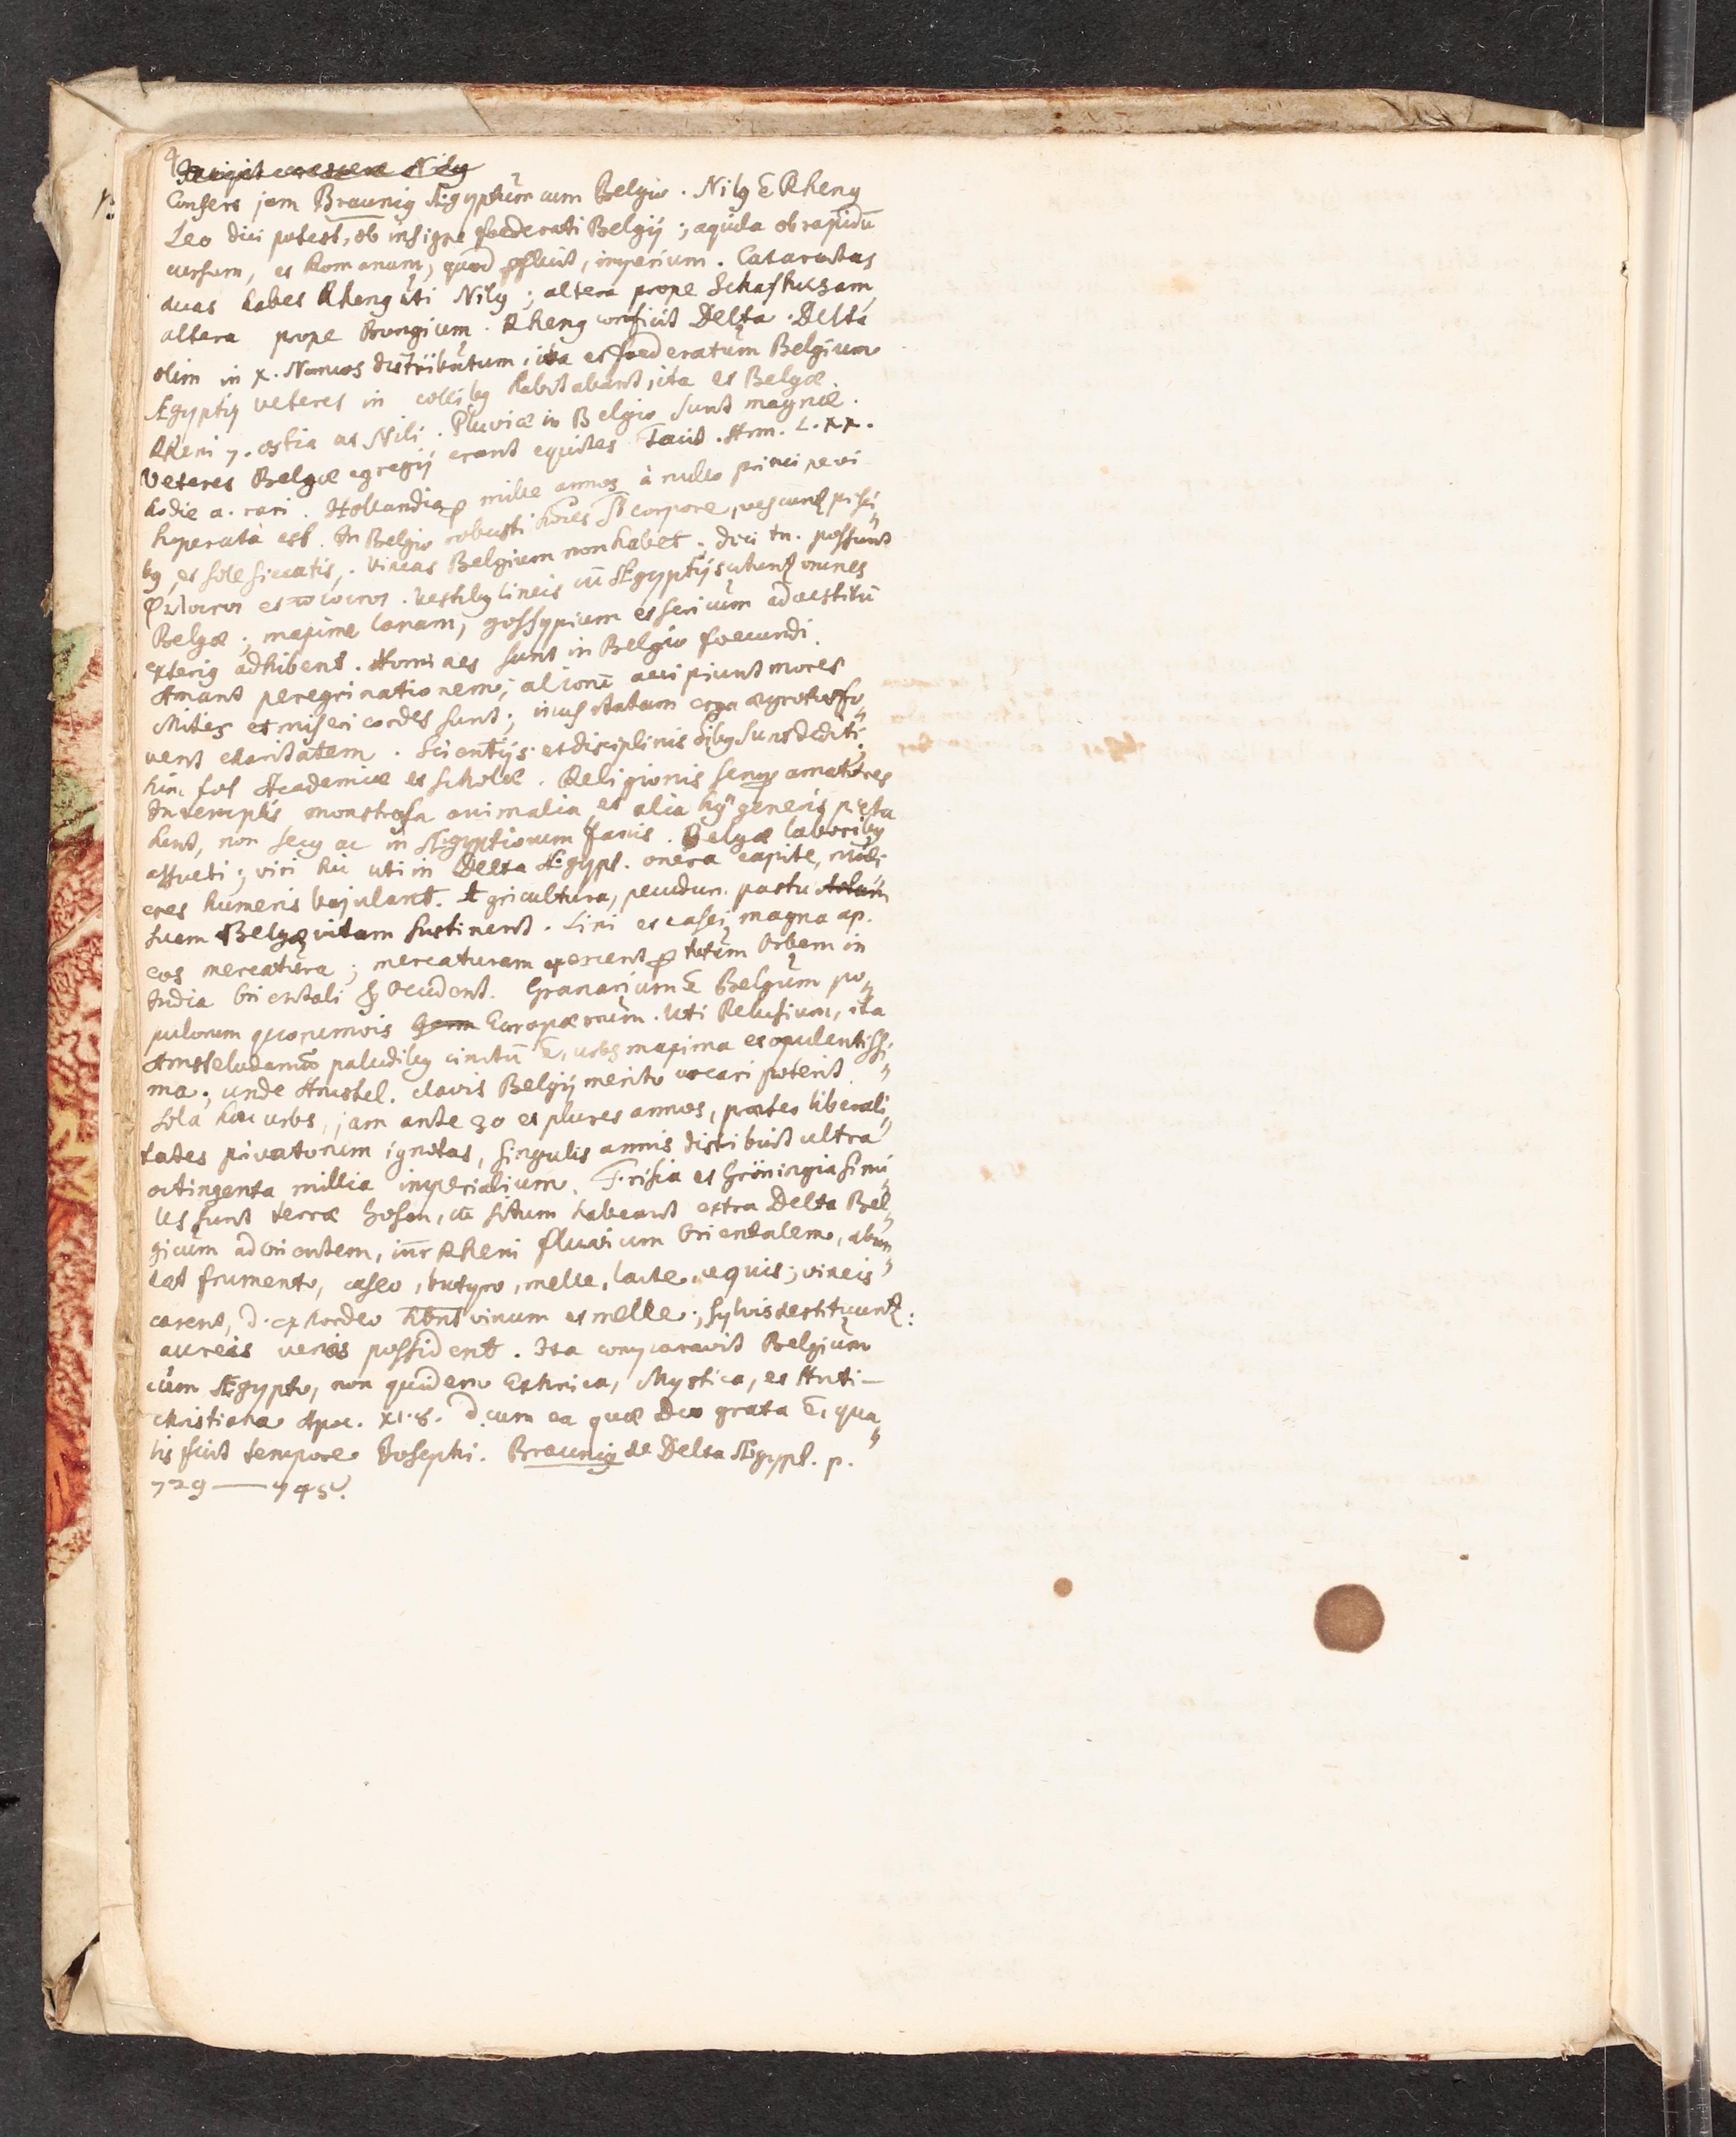 Incipit crescere Nilꝰ
Confers jam Braunig Ægyptŭm cum Belgio. Nilꝰ ē Rhenꝰ
Leo dici potest, ob insigne foederati Belgij; aquila ob rapidū
cursum, et Romanum, quod ꝑfluit, imperium. Cataractas
duas habes Rhenꝰ ŭti Nilꝰ; altera prope Schafhusam,
altera prope Brungium. Rhenꝰ conficit Delta. Delta
olim in X. Nomos distribŭtum, ita et foederatŭm Belgium
Ægyptij veteres in collibꝰ habitabant, ita et Belgæ.
Rheni 7. ostia ut Nili. Pluviæ in Belgio sunt magnæ.
Veteres Belgæ egregij erant equites Tacit. Ann. L. XX.
hodie a. rari. Hollandia ꝑ mille annos à nullo principe vi
superata est. In Belgio robusti hoīes st̄ corpore, vescunt᷑ pisci„
bꝰ, et sole siccatis,. Vineas Belgium non habet; dici tn. possunt
φιλοινοι et ποιοινοι. Vestibꝰ lineis cū Ægyptijs utunt᷑ omnes
Belgæ; maxime lanam, gossypium et sericŭm ad vestitū
exteriꝰ adhibent. Homines sunt in Belgio foecundi.
Amant peregrinationem; alionū accipiunt mores
Mites et misericordes sunt; inusitatam erga ægrotos fo„
vent charitatem. Scientijs et disciplinis oībꝰ sunt dediti;
hinc tot Academiæ et scholæ. Religionis semꝑ amatores
In templis monstrosa animalia et alia hꝰ generis pręta
hent, non secꝰ ac in Ægyptionum fanis. Belgæ laboribꝰ
assueti; viri hic uti in Delta Ægypt. onera capite, muli„
eres humeris bajulant. Agricultura, pecudum pastu
suem Belgæ vitam sustinent. Lini et casei magna ap.
eos mercatŭra; mercaturam exercent ꝑ totŭm Orbem in
India Orientali & Occident. Granarium ē Belgŭm po„
pulorum quorumvis Europæorŭm. Uti Pelusium, ita
Amsteludamū paludibꝰ cinctū ē, urbs maxima et opulentissi„
ma; unde Amstel. clavis Belgij merito vocari poterit.
Sola hæc urbs, jam ante 30 et plures annos, præter liberali„
tates privatorum ignotas, singulis annis distribuit ultra
octingenta millia imperialium. Frisia et Gröningia simi„
les sunt terræ Gosen, cū situm habeant extra Delta Bel„
gicŭm ad Orientem, int̄r Rheni fluvium Orientalem, abun„
dat frumento, caseo, butyro, melle, lacte, equis; vineis
carent, d. ex hordeo hn̄t vinum et melle; sylvis destituunt᷑:
aureas venas possident. Ita comparavit Belgium
cŭm Ægypto, non quidem Ethnica, Mystica, et Anti-
christiana Apoc. XI. 8. d. cum ea quæ Deo grata ē, qua„
lis fuit tempore Josephi. Braunig de Delta Ægypt. p.
729 — 745.